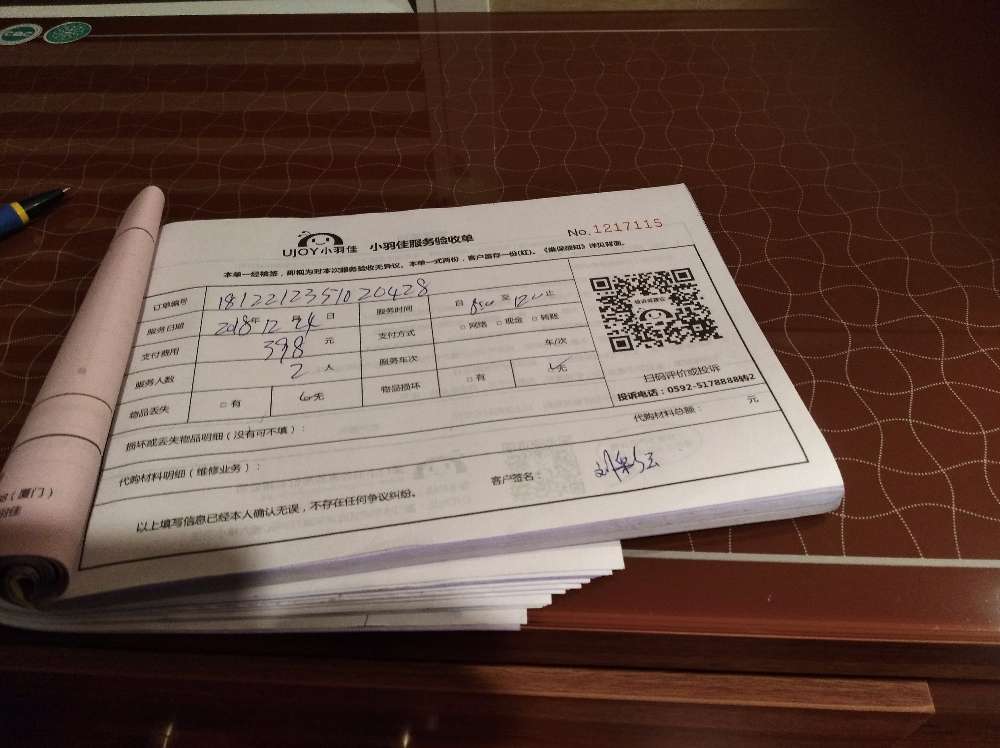 CQC
UJOY小羽佳 小羽佳服务验收单 No.1217115
本单一经确签，即视为对本次服务验收无异议。本单一式两份，客户留存一份(红)。《维保须知》详见背面。
订单编号 1812212351020428
服务日期 2018年12月24日 服务时间 自8:00至12:00止
支付费用 398元 支付方式 □网络 □现金 □转账
服务人数 2人 服务车次 车/次
物品丢失 □有 无 物品损坏 □有 无
扫码评价或投诉
投诉电话：0592-5178888转2
损坏或丢失物品明细（没有可不填）：
代购材料明细（维修业务）： 代购材料总额： 元
以上填写信息已经本人确认无误，不存在任何争议纠纷。 客户签名：
（厦门）
羽佳